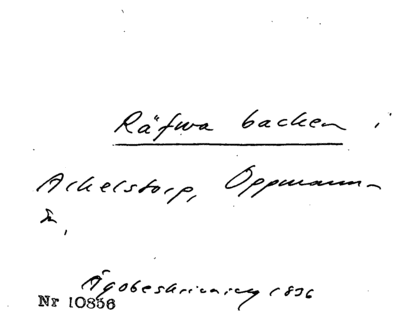 Räfwa backen i
Arkelstorp, Oppmann-
a,
Ägobeskrivning 1836
Nr 10856